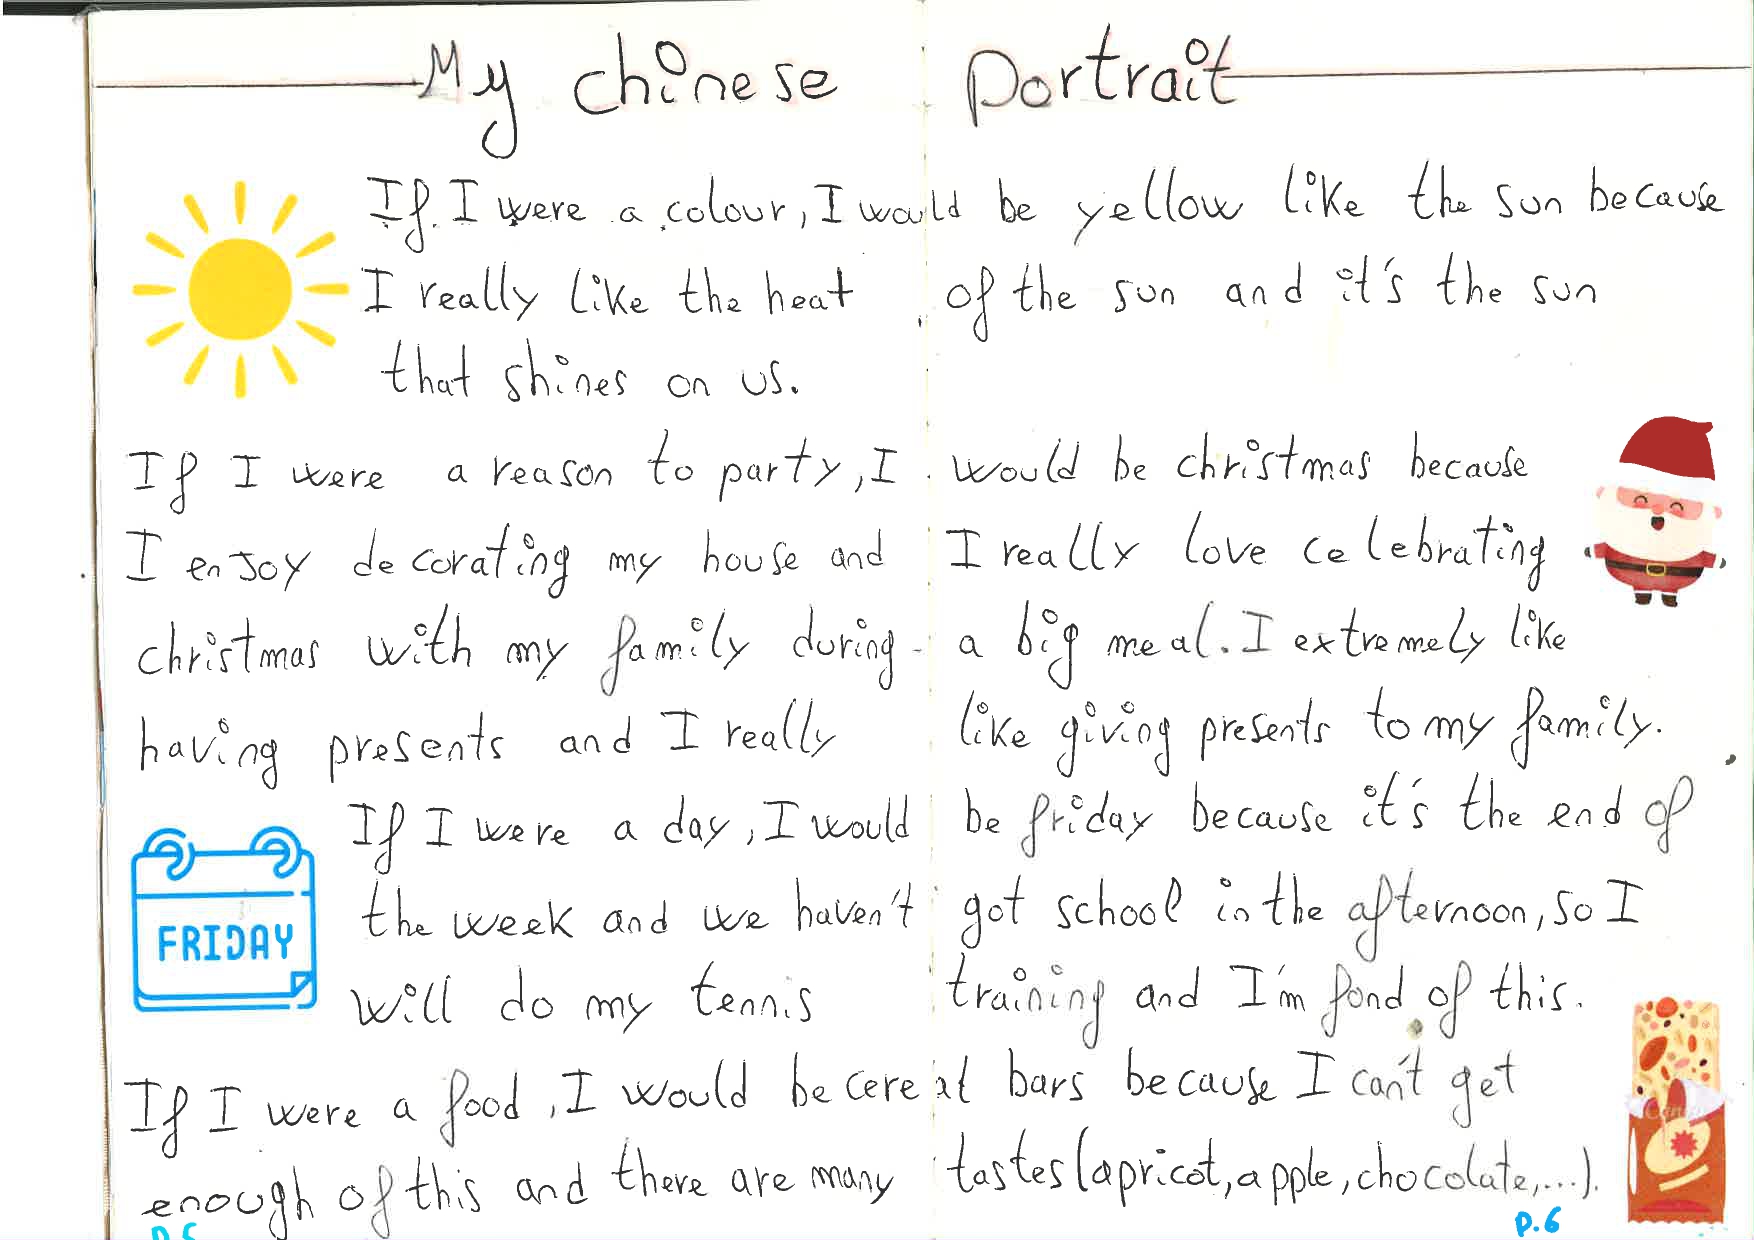 My chinese Portrait
If I were a colour, I would be yellow like the sun because
I really like the heat of the sun and it's the sun
that shines on us.
If I were a reason to party, I would be christmas because
I enjoy decorating my house and I really love celebrating
christmas with my family during a big meal. I extremely like
having presents and I really like giving presents to my family.
If I were a day, I would be friday because it's the end of
the week and we haven't got school in the afternoon, so I
FRIDAY
will do my tennis training and I'm fond of this.
If I were a food, I would be cereal bars because I can't get
enough of this and there are many tastes (apricot, apple, chocolate, ...).
p.5
p.6